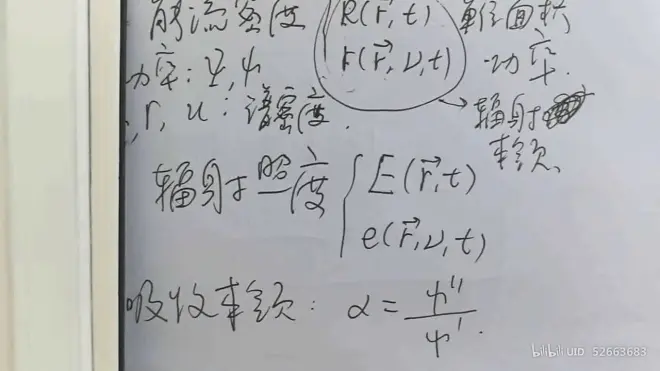 能流密度 { R(r⃗, t) 单位面积
功率: Ψ, ψ r(r⃗, ν, t) 功率.
, r, u: 谱密度. → 辐射
本领
辐射照度 { E(r⃗, t)
e(r⃗, ν, t)
吸收本领: α = ψ'' / ψ' .
bilibili UID 52663683